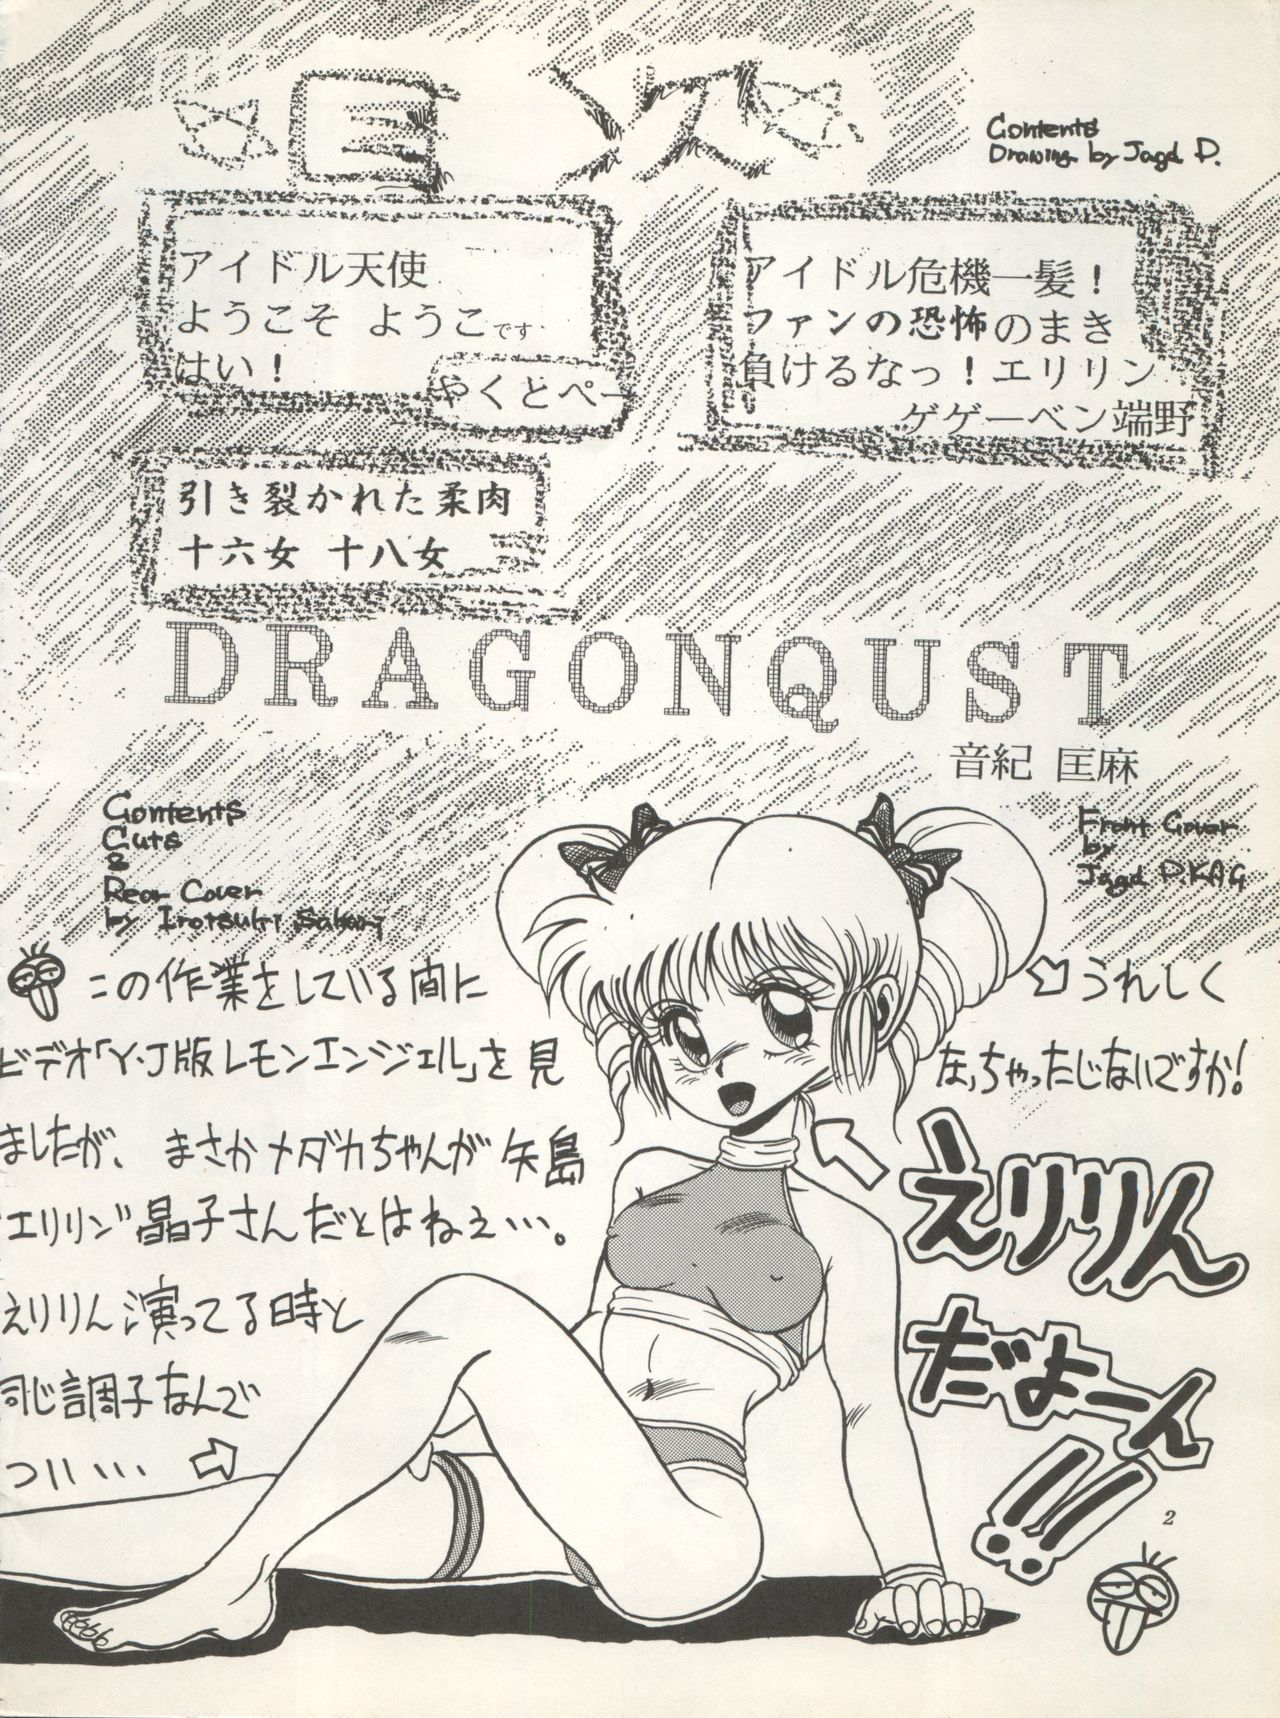 目次
Contents
Drawing by Jagd D.
アイドル天使
ようこそ ようこです
はい！
やくとぺー
アイドル危機一髪！
ファンの恐怖のまき
負けるなっ！エリリン
ゲゲーベン端野
引き裂かれた柔肉
十六女 十八女
DRAGONQUST
音紀 匡麻
Contents
Cuts
&
Rear Cover
by Irotsuki Sakari
Front Cover
by
Jagd D.KAG
この作業をしている間に
ビデオ「Y・J版レモンエンジェル」を見
ましたが、まさかメダカちゃんが矢島
"エリリン"晶子さんだとはねぇ・・・。
えりりん演ってる時と
同じ調子なんで
つい・・・
うれしく
なっちゃったじないですか!
えりりん
だよーん
!!!
2